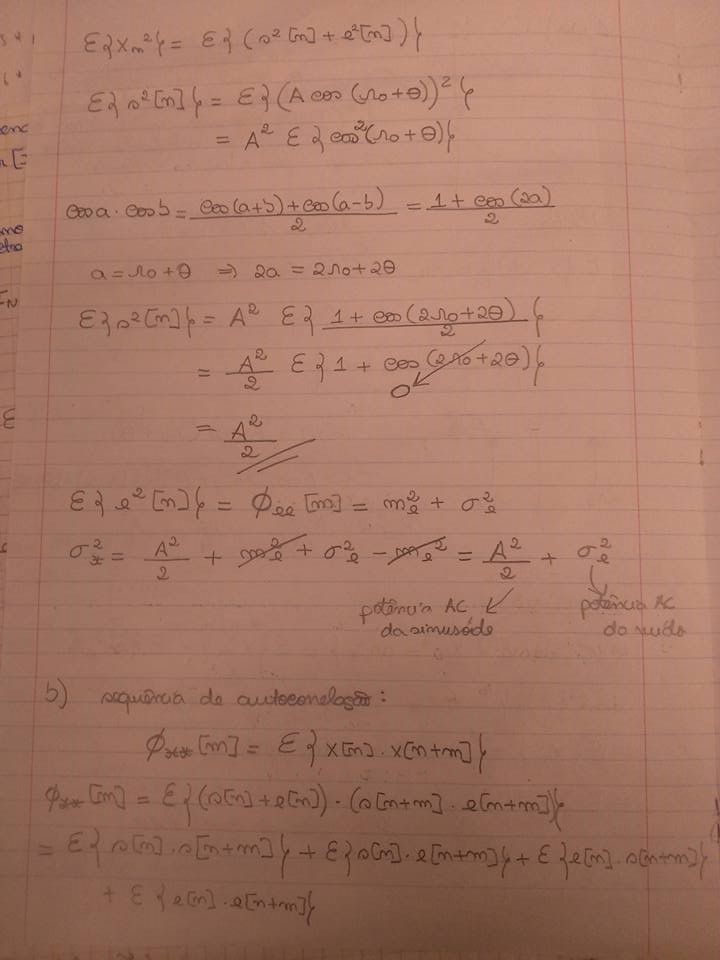 ε{x_n²} = ε{(s²[n] + e²[n])}
ε{s²[n]} = ε{(A cos(n₀+θ))²}
= A² ε{cos²(n₀+θ)}
cos a · cos b = (cos(a+b) + cos(a-b))/2 = (1 + cos(2a))/2
a = n₀+θ ⇒ 2a = 2n₀+2θ
ε{s²[n]} = A² ε{(1 + cos(2n₀+2θ))/2}
= A²/2 ε{1 + cos(2n₀+2θ)}
0
= A²/2
ε{e²[n]} = ϕ_ee[m] = m_e² + σ_e²
σ_x² = A²/2 + m_e² + σ_e² - m_e² = A²/2 + σ_e²
potência AC da sinusóide
potência AC do ruído
b) sequência de autocorrelação:
ϕ_xx[m] = ε{x[n] · x[n+m]}
ϕ_xx[m] = ε{(s[n]+e[n]) · (s[n+m] · e[n+m])}
= ε{s[n] · s[n+m]} + ε{s[n] · e[n+m]} + ε{e[n] · s[n+m]}
+ ε{e[n] · e[n+m]}